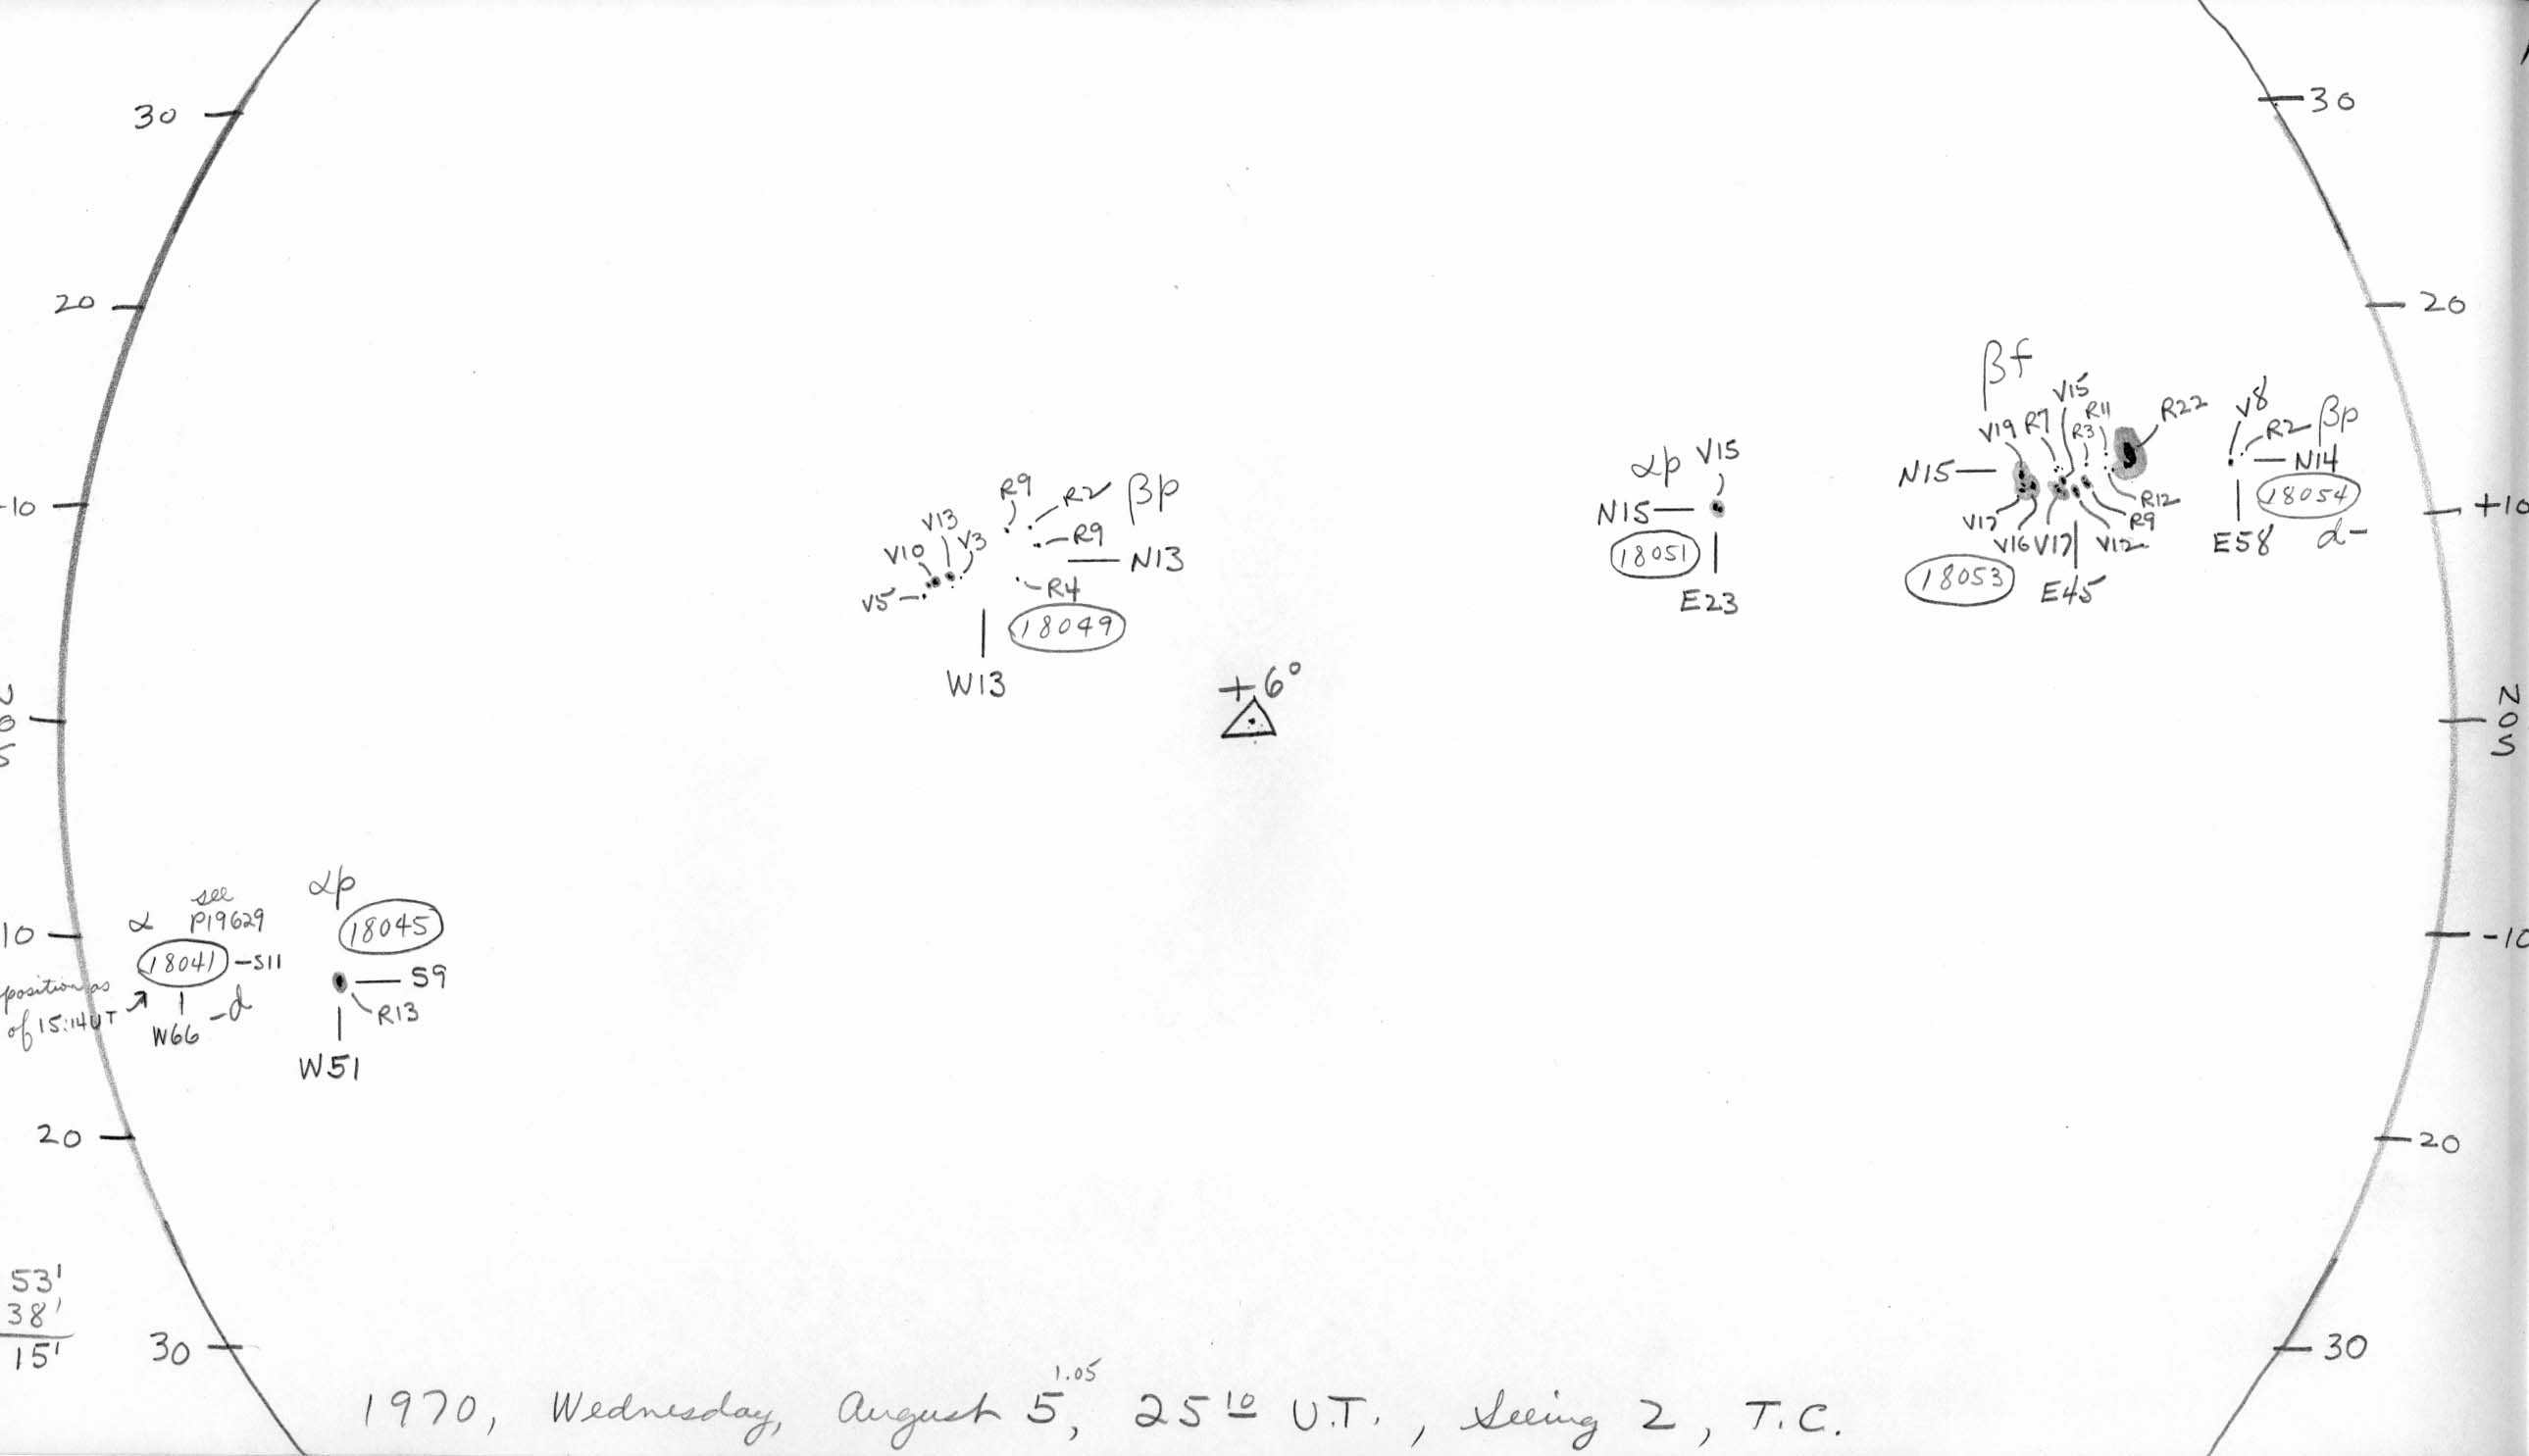 30
30
20
20
βf
V15
V19 R7 R3 R11 R22
V8
R2 βp
αp V15
N15
N14
18054
R9 R2 βp
V13
V10 V3 R9
N13
V5 R4
18049
W13
N15
18051
E23
V17 V16 V17 V12 R9 R12
18053
E45
E58 d-
10
+10
+6°
N
0
S
N
0
S
αp
see
α P19629
18045
10
-10
18041 -S11
S9
position as
of 15:14 UT
W66 -d
R13
W51
20
20
53'
38'
15'
30
30
1.05
1970, Wednesday, August 5, 25 10 U.T., Seeing 2, T.C.